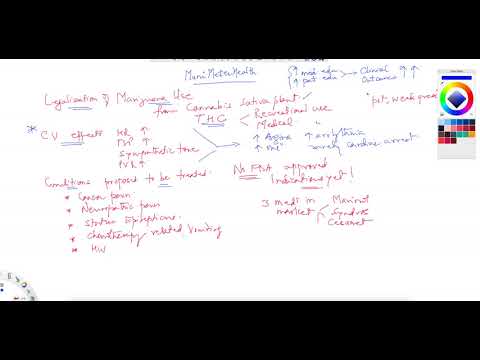 ManiMeterHealth
↑ med edu
↑ pat edu
Clinical Outcomes ↑ ↑
Legalization of Marijuana Use
from Cannabis sativa plant
THC
Recreational use
Medical "
"pot, weak
** CV effects
HR ↑
Sympathetic tone
PVR ↑
↑ Angina
↑ MI
↑ arrhythmia
early cardiac arrest
No FDA approved Indications yet!
Conditions proposed to be treated:
* Cancer pain
* Neuropathic pain
* Chemotherapy related Vomiting
* HIV
3 meds in market
Marinol
Syndros
Cesamet